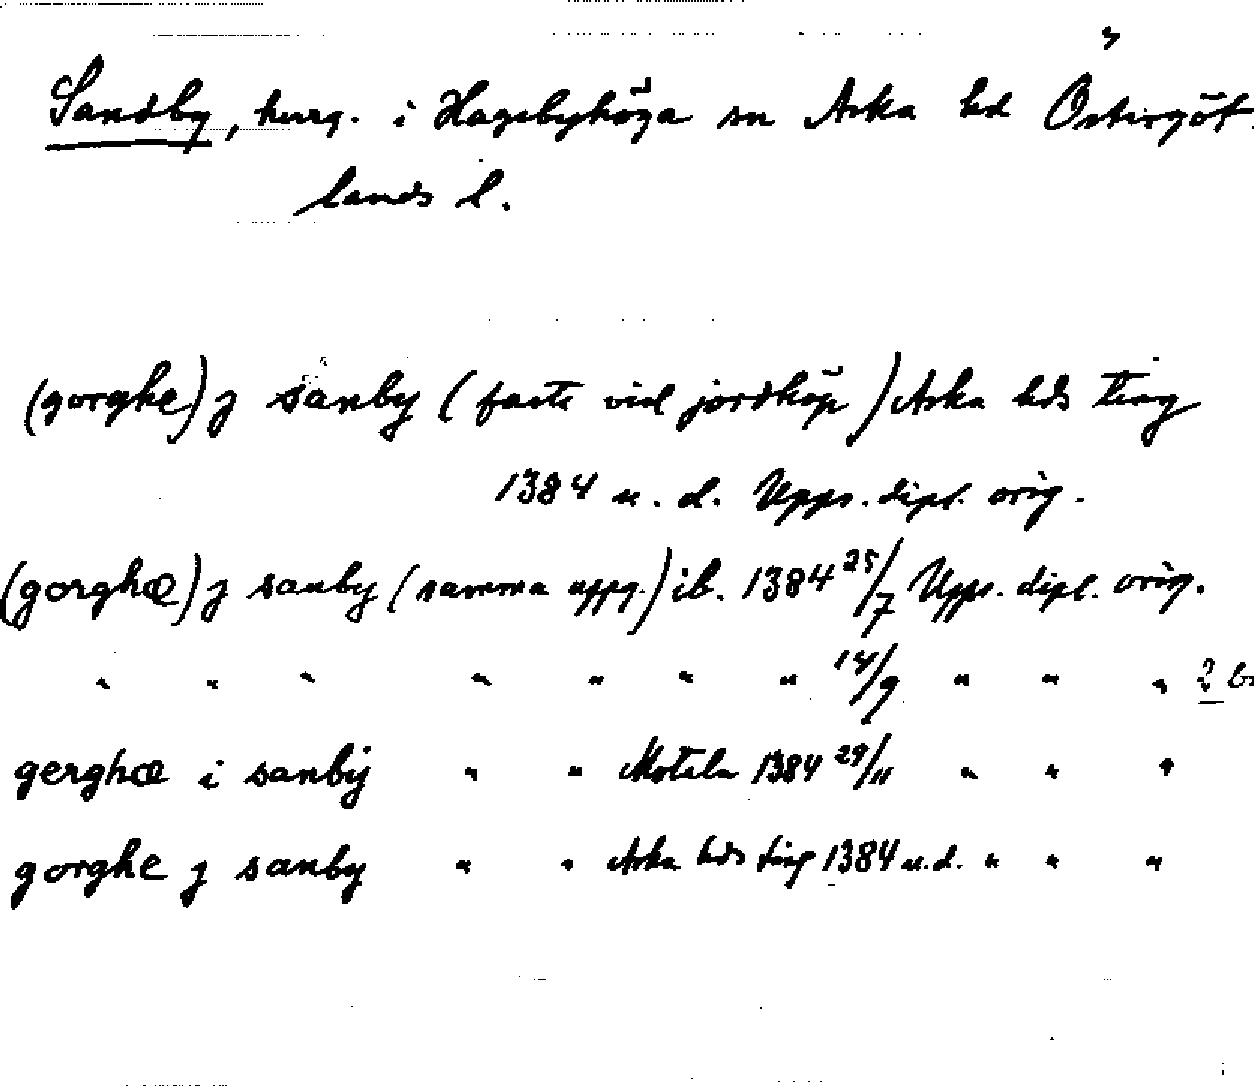 Sandby, herrg. i Hagebyhöga sn Aska hd Östergöt-
lands l.
(gorghe) j sanby (faste vid jordköp) Aska hds ting
1384 u. d. Upps. dipl. orig.
(gorghæ) j sanby (samma uppg.) ib. 1384 25/7 Upps. dipl. orig.
" " " " " " " 14/9 " " " 2 br
gerghæ i sanbÿ " " Motala 1384 29/11 " " "
gorghe j sanby " " Aska hds ting 1384 u. d. " " "